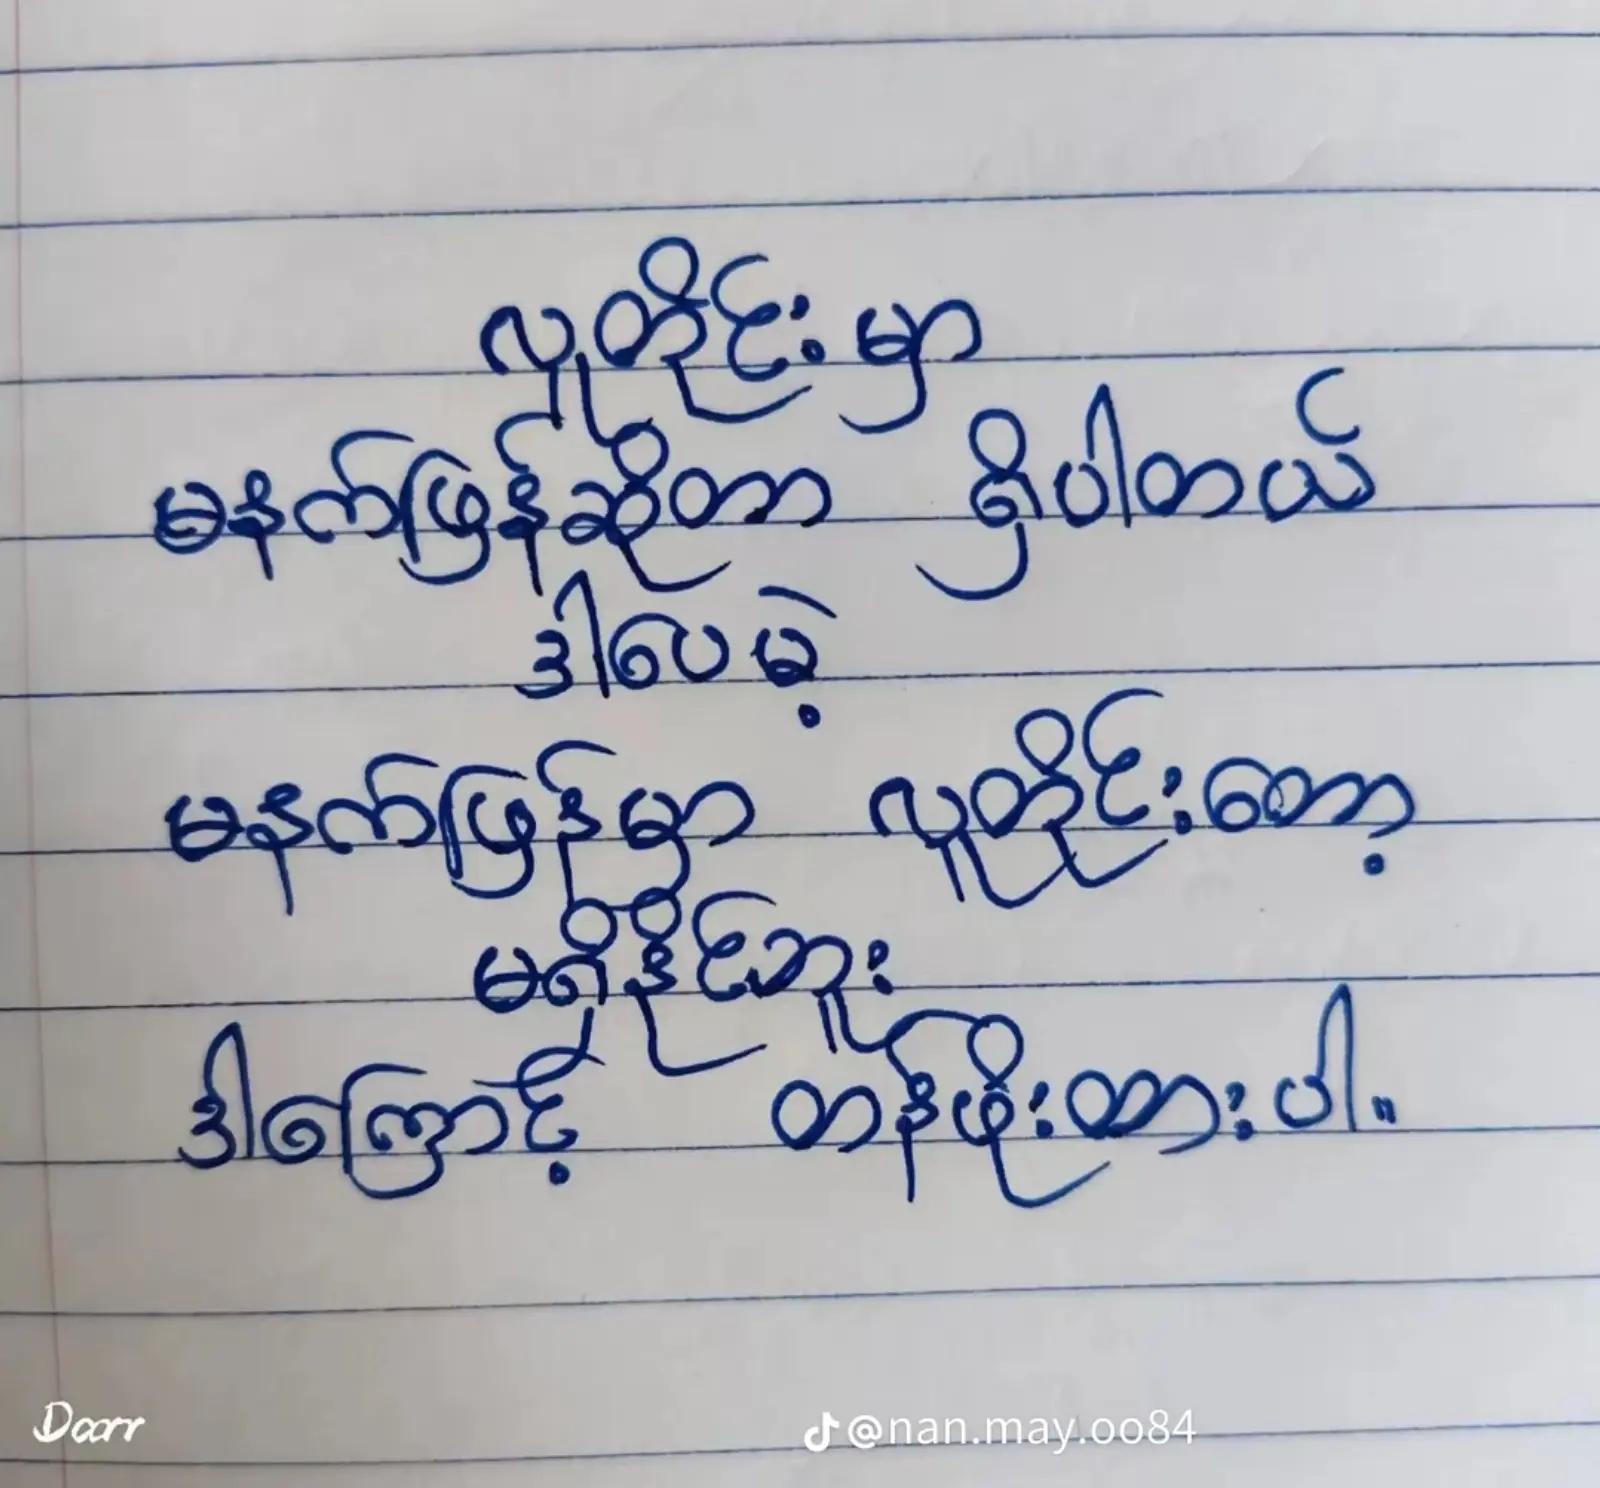 လူတိုင်းမှာ
မနက်ဖြန်ဆိုတာ ရှိပါတယ်
ဒါပေမဲ့
မနက်ဖြန်မှာ လူတိုင်းတော့
မရှိနိုင်ဘူး
ဒါကြောင့် တန်ဖိုးထားပါ။
Darr
@nan.may.oo84